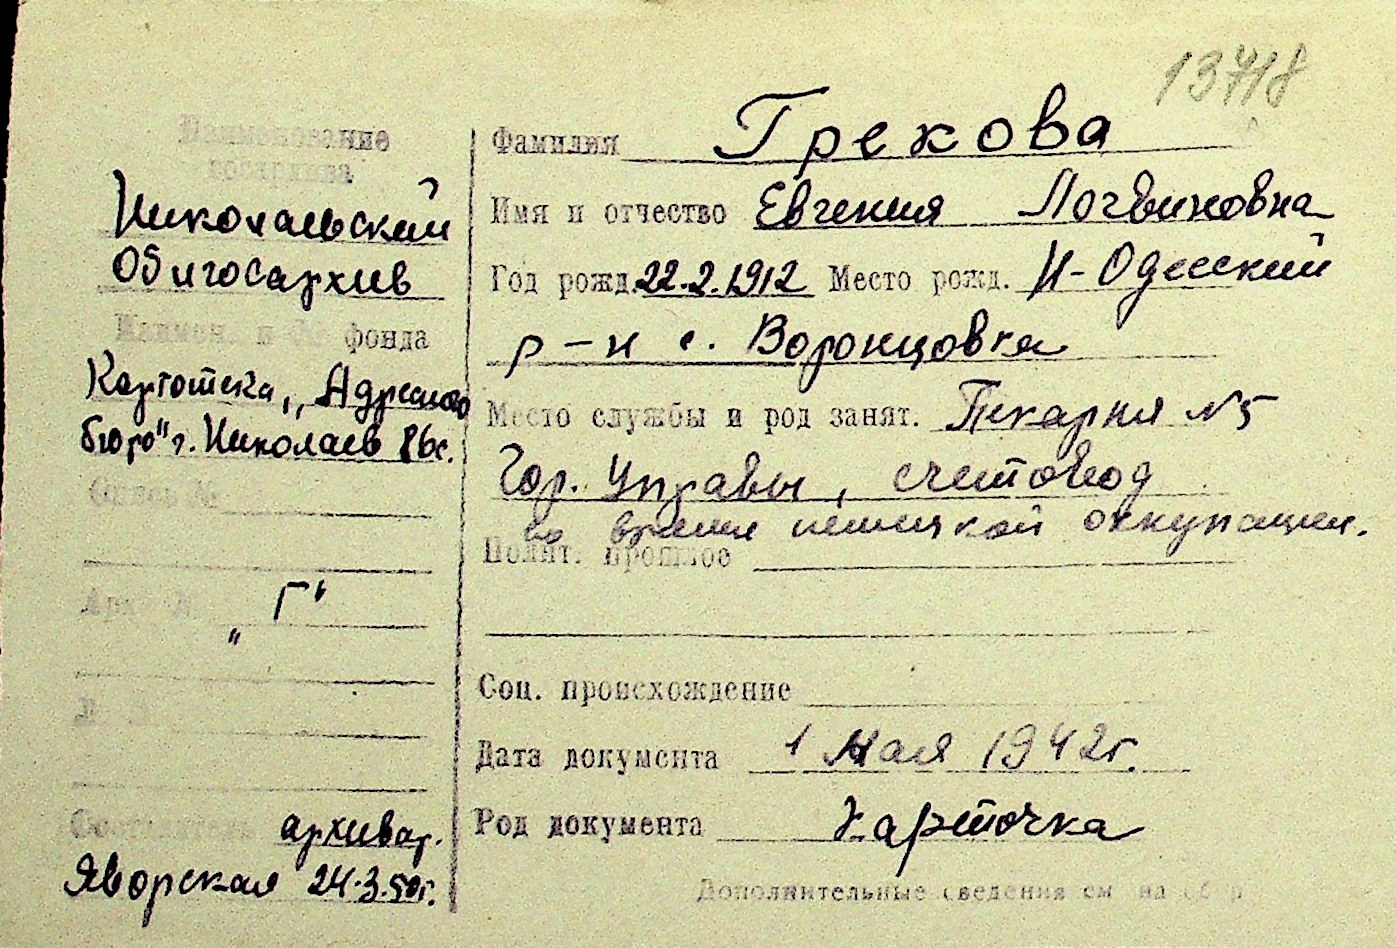 13718
Наименование
госархива
Николаевский
Облгосархив
Наимен. и № фонда
Картотека „Адресного
бюро" г. Николаев
Связь №
Арх. №
„Г"
Составитель архивар.
Яворская 24.3.50г.
Фамилия Грекова
Имя и отчество Евгения Логвиновна
Год рожд. 22.2.1912 Место рожд. Н-Одесский
р-н с. Воронцовка
Место службы и род занят. Пекарня №5
Гор. Управы, счетовод
во время немецкой оккупации.
Полит. прошлое
Соц. происхождение
Дата документа 1 Мая 1942г.
Род документа карточка
Дополнительные сведения см на обор